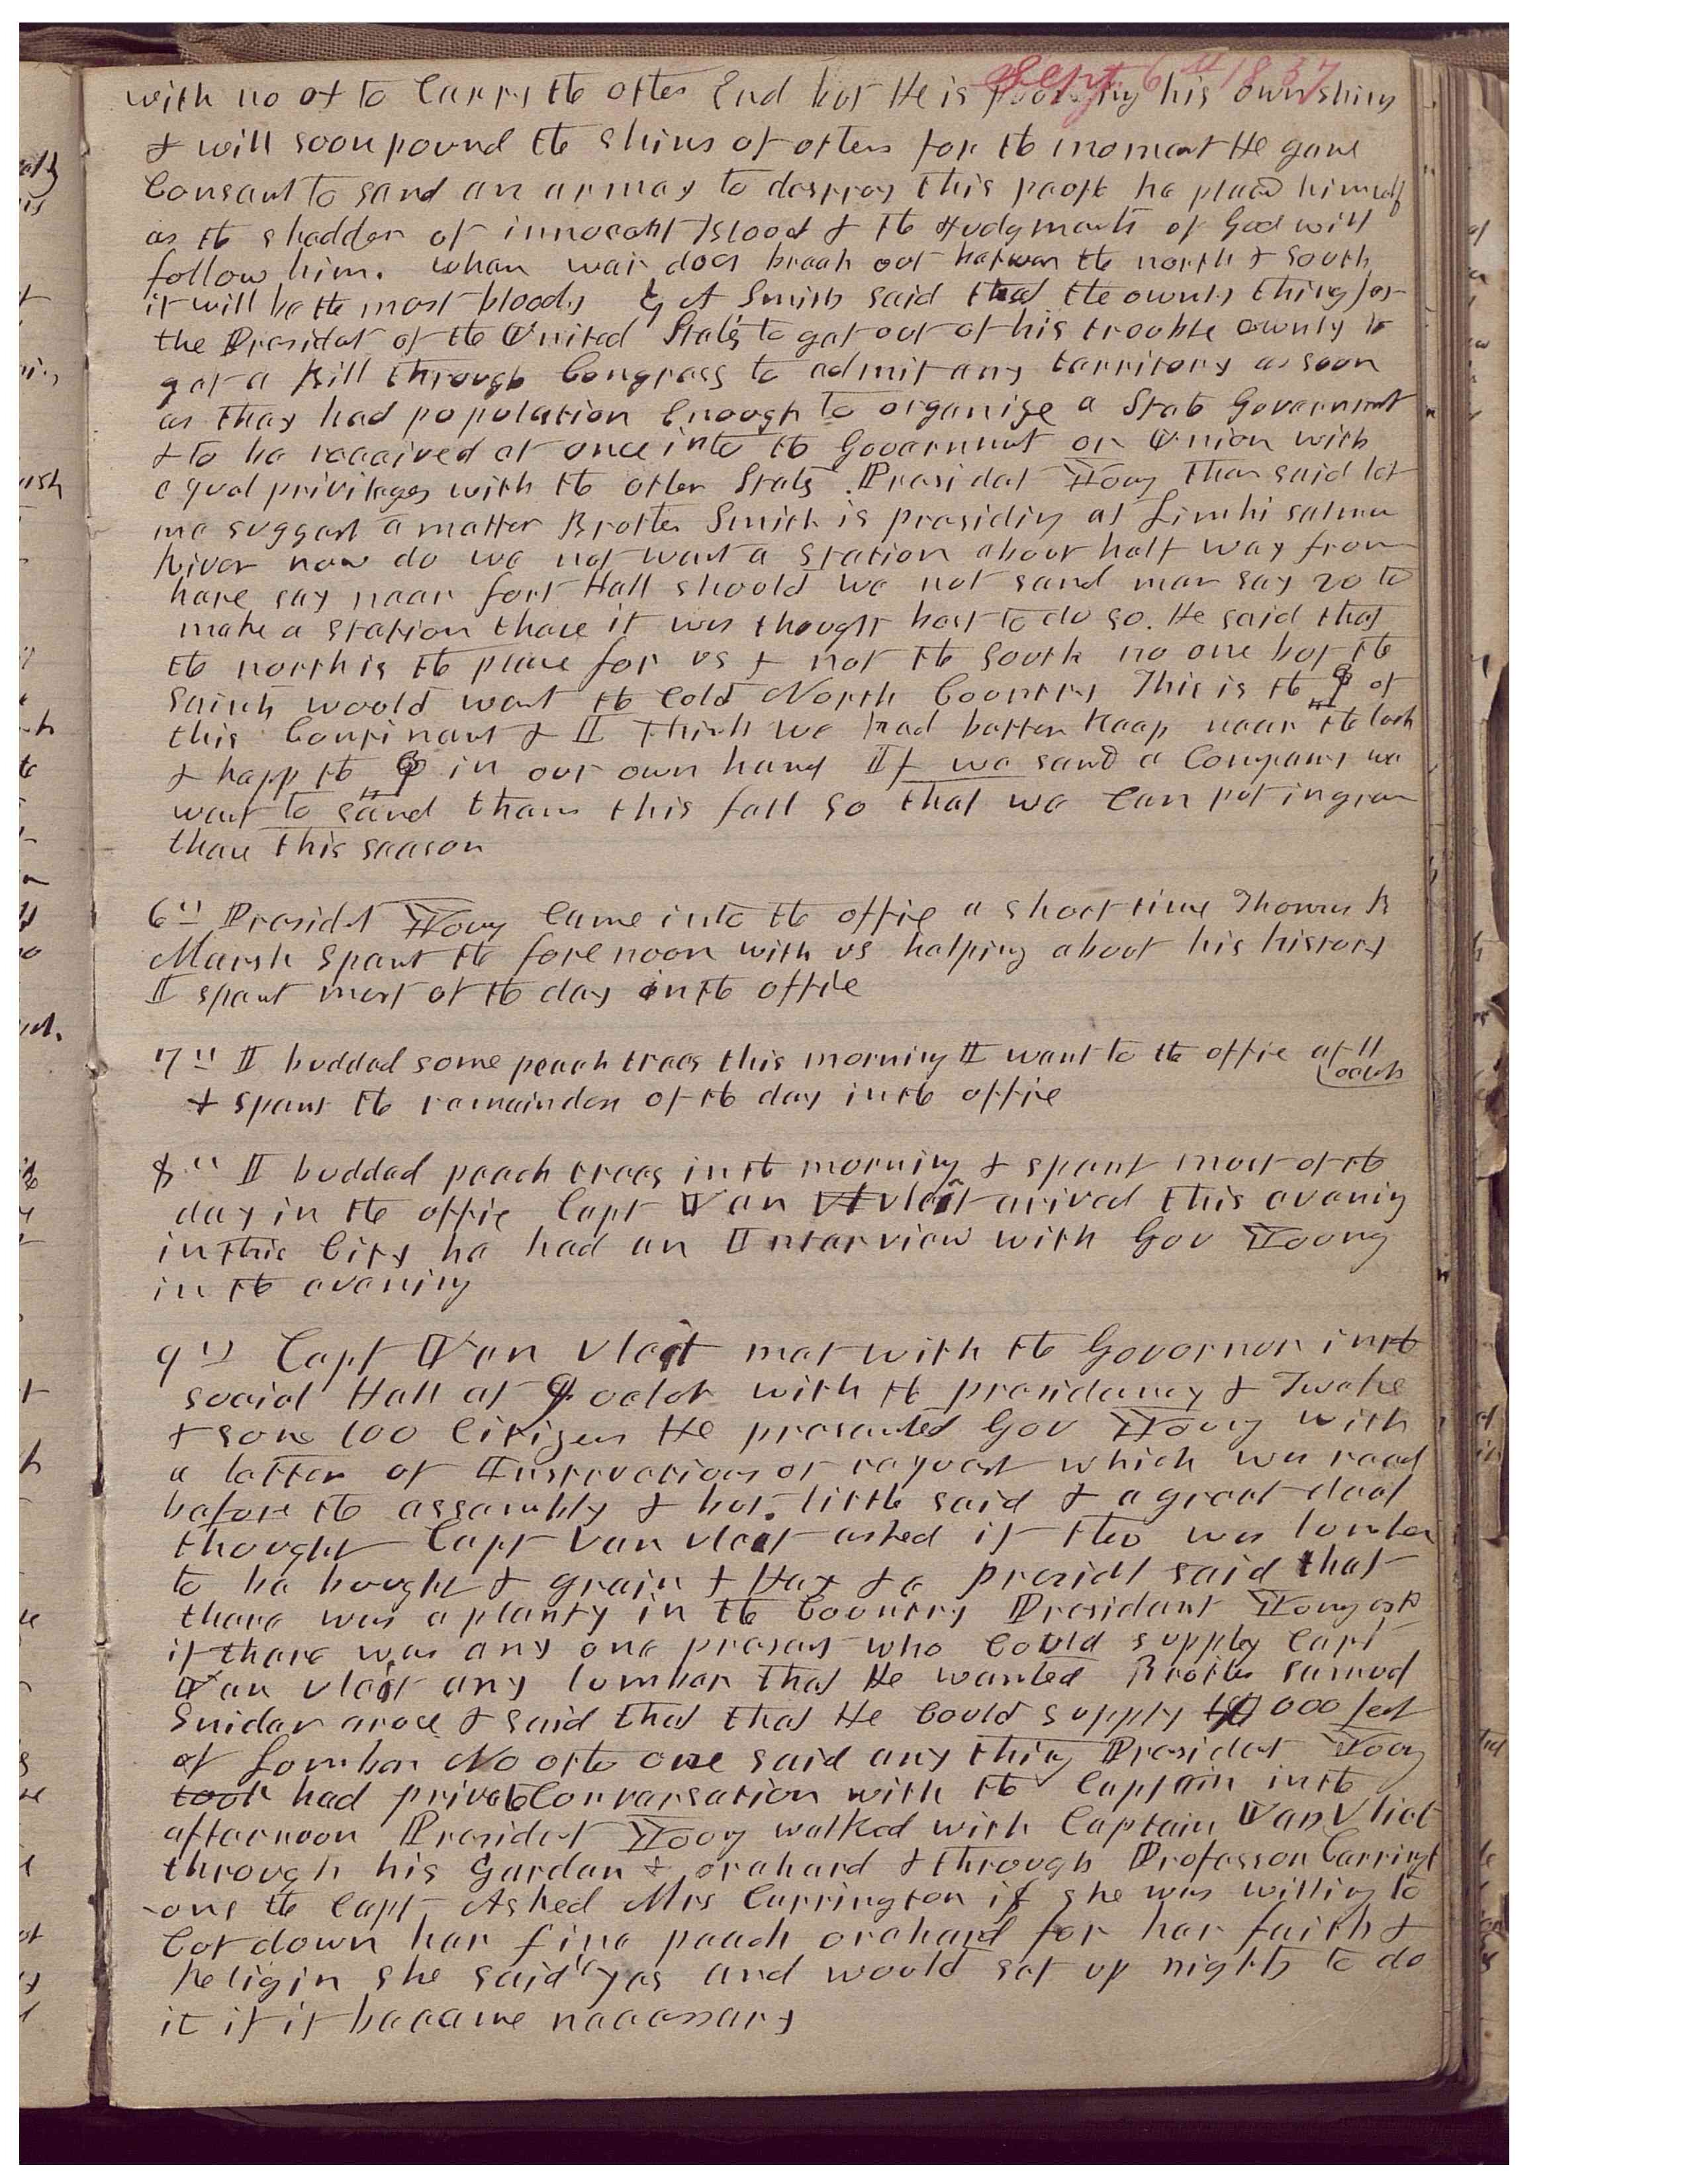 Sept 6th 1857
with no ox to Carry the other End but He is pounding his own shins
& will soon pound the shins of others for the moment He gave
Consent to send an armey to destroy this people he placed himself
as the shedder of innocent Blood & the Judgments of God will
follow him. when war does break out between the north & South
it will be the most bloody G A Smith said that the ownly thing for
the President of the United States to get out of his trouble ownly to
get a Bill through Congress to admit any territory as soon
as they had population Enough to organize a State Government
& to be received at once into the Government or Union with
equal privileges with the other States. President Young then said let
me suggest a matter Brother Smith is presiding at Limhi salmon
River now do we not want a station about half way from
here say near fort Hall should we not send men say 20 to
make a station there it was thought best to do so. He said that
the north is the place for us & not the South no one but the
Saints would want the Cold North Country This is the of
this Continant & I Think we had better Keep near the lock
& keep the in our own hand If we send a Company we
want to send them this fall so that we Can put in grain
there this season
6" President Young Came into the office a short time Thomas B
Marsh spent the fore noon with us helping about his history
I spent most of the day in the office
7" I budded some peach trees this morning I went to the office at 11
oclok
& spent the remainder of the day in the office
8" I budded peach trees in the morning & spent most of the
day in the office Capt Van Vleit arived this evening
in this City he had an Interview with Gov Young
in the evening
9" Capt Van Vleit met with the Governor in the
social Hall at 9 oclok with the presidency & Twelve
& some 100 Citizens He presented Gov Young with
a letter of Instructions or request which was read
before the assembly & but little said & a great deal
thought Capt Van Vleit asked if there was lumber
to be bought & grain & Hay &c presidt said that
there was a plenty in the Country President Young ask
if there was any one present who Could supply Capt
Van Vleit any lumber that He wanted Brother Samuel
Snider arose & said that that He Could supply 000 feet
of Lumber No other one said any thing President Young
took had private Conversation with the Captain in the
afternoon President Young walked with Captain Van Vliet
through his Garden & orchard & through Professor Carringt
-ons the Capt. Asked Mrs Carrington if she was willing to
Cut down her fine peach orchard for her faith &
Religin she said "yes and would set up nights to do
it if it became necessary